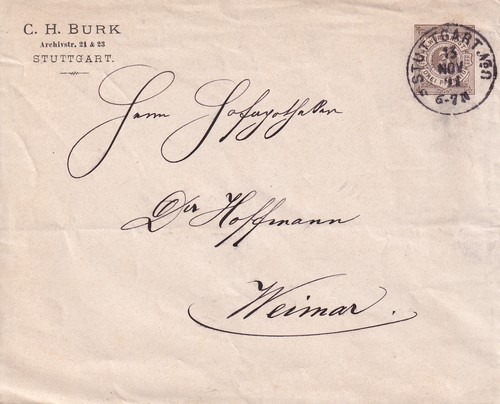 C. H. BURK
Archivstr. 21 & 23
STUTTGART.
STUTTGART No
13
NOV
6-7N
Herrn Hofapotheker
Dr Hoffmann
Weimar.